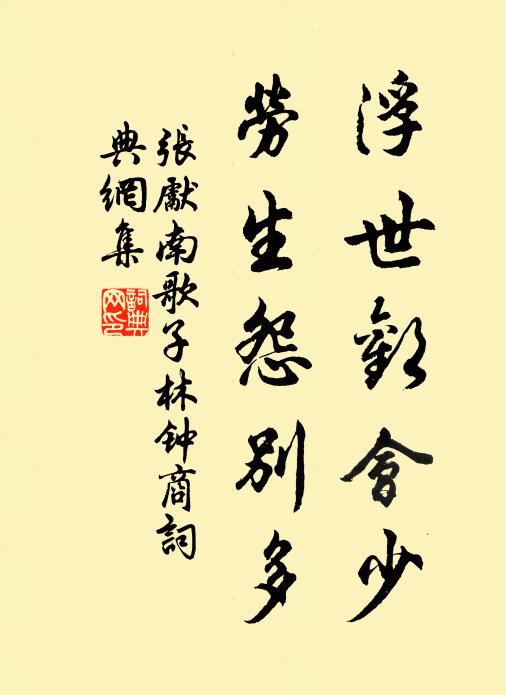 浮世歡會少
勞生怨別多
張獻南歌子林钟商詞
典網集
詞典
网印